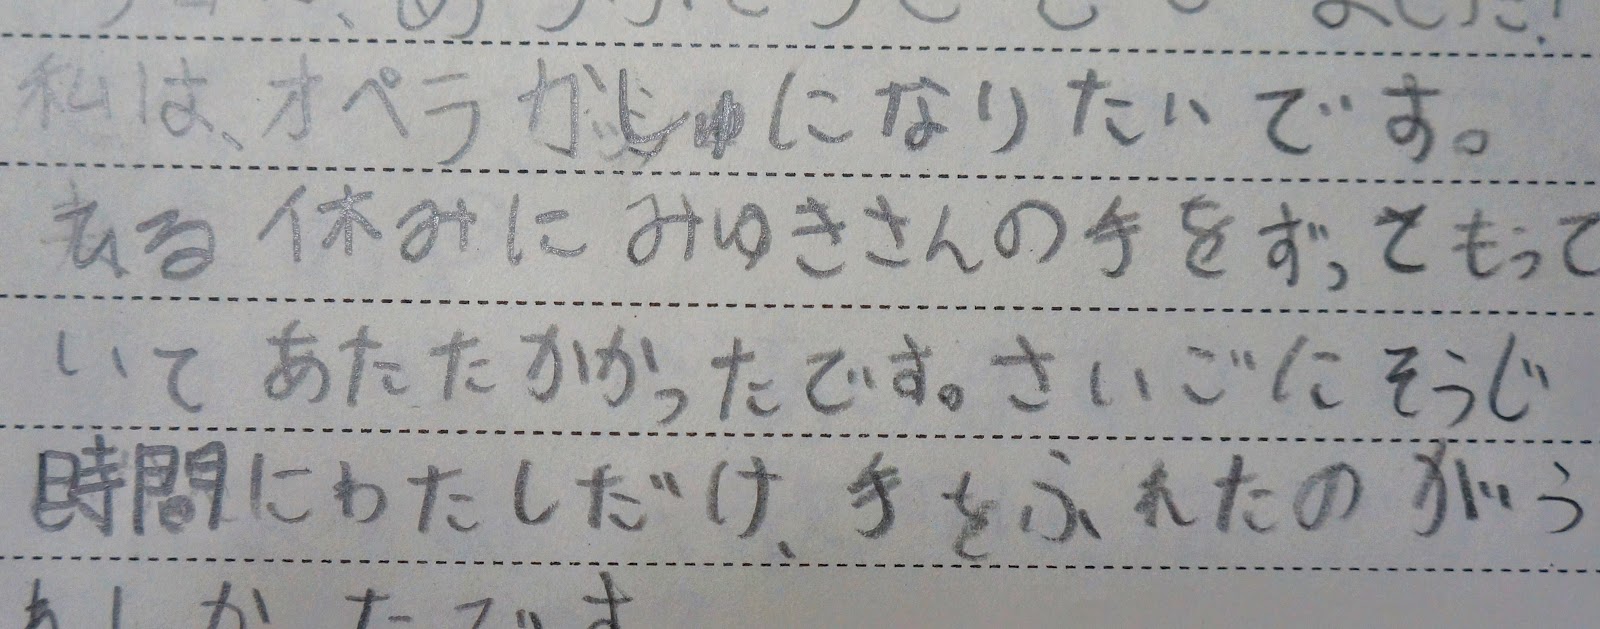 ました!
私は、オペラがしゅになりたいです。
休みにみゆきさんの手をずっともって
いてあたたかかったです。さいごにそうじ
時間にわたしだけ、手をふれたのがう